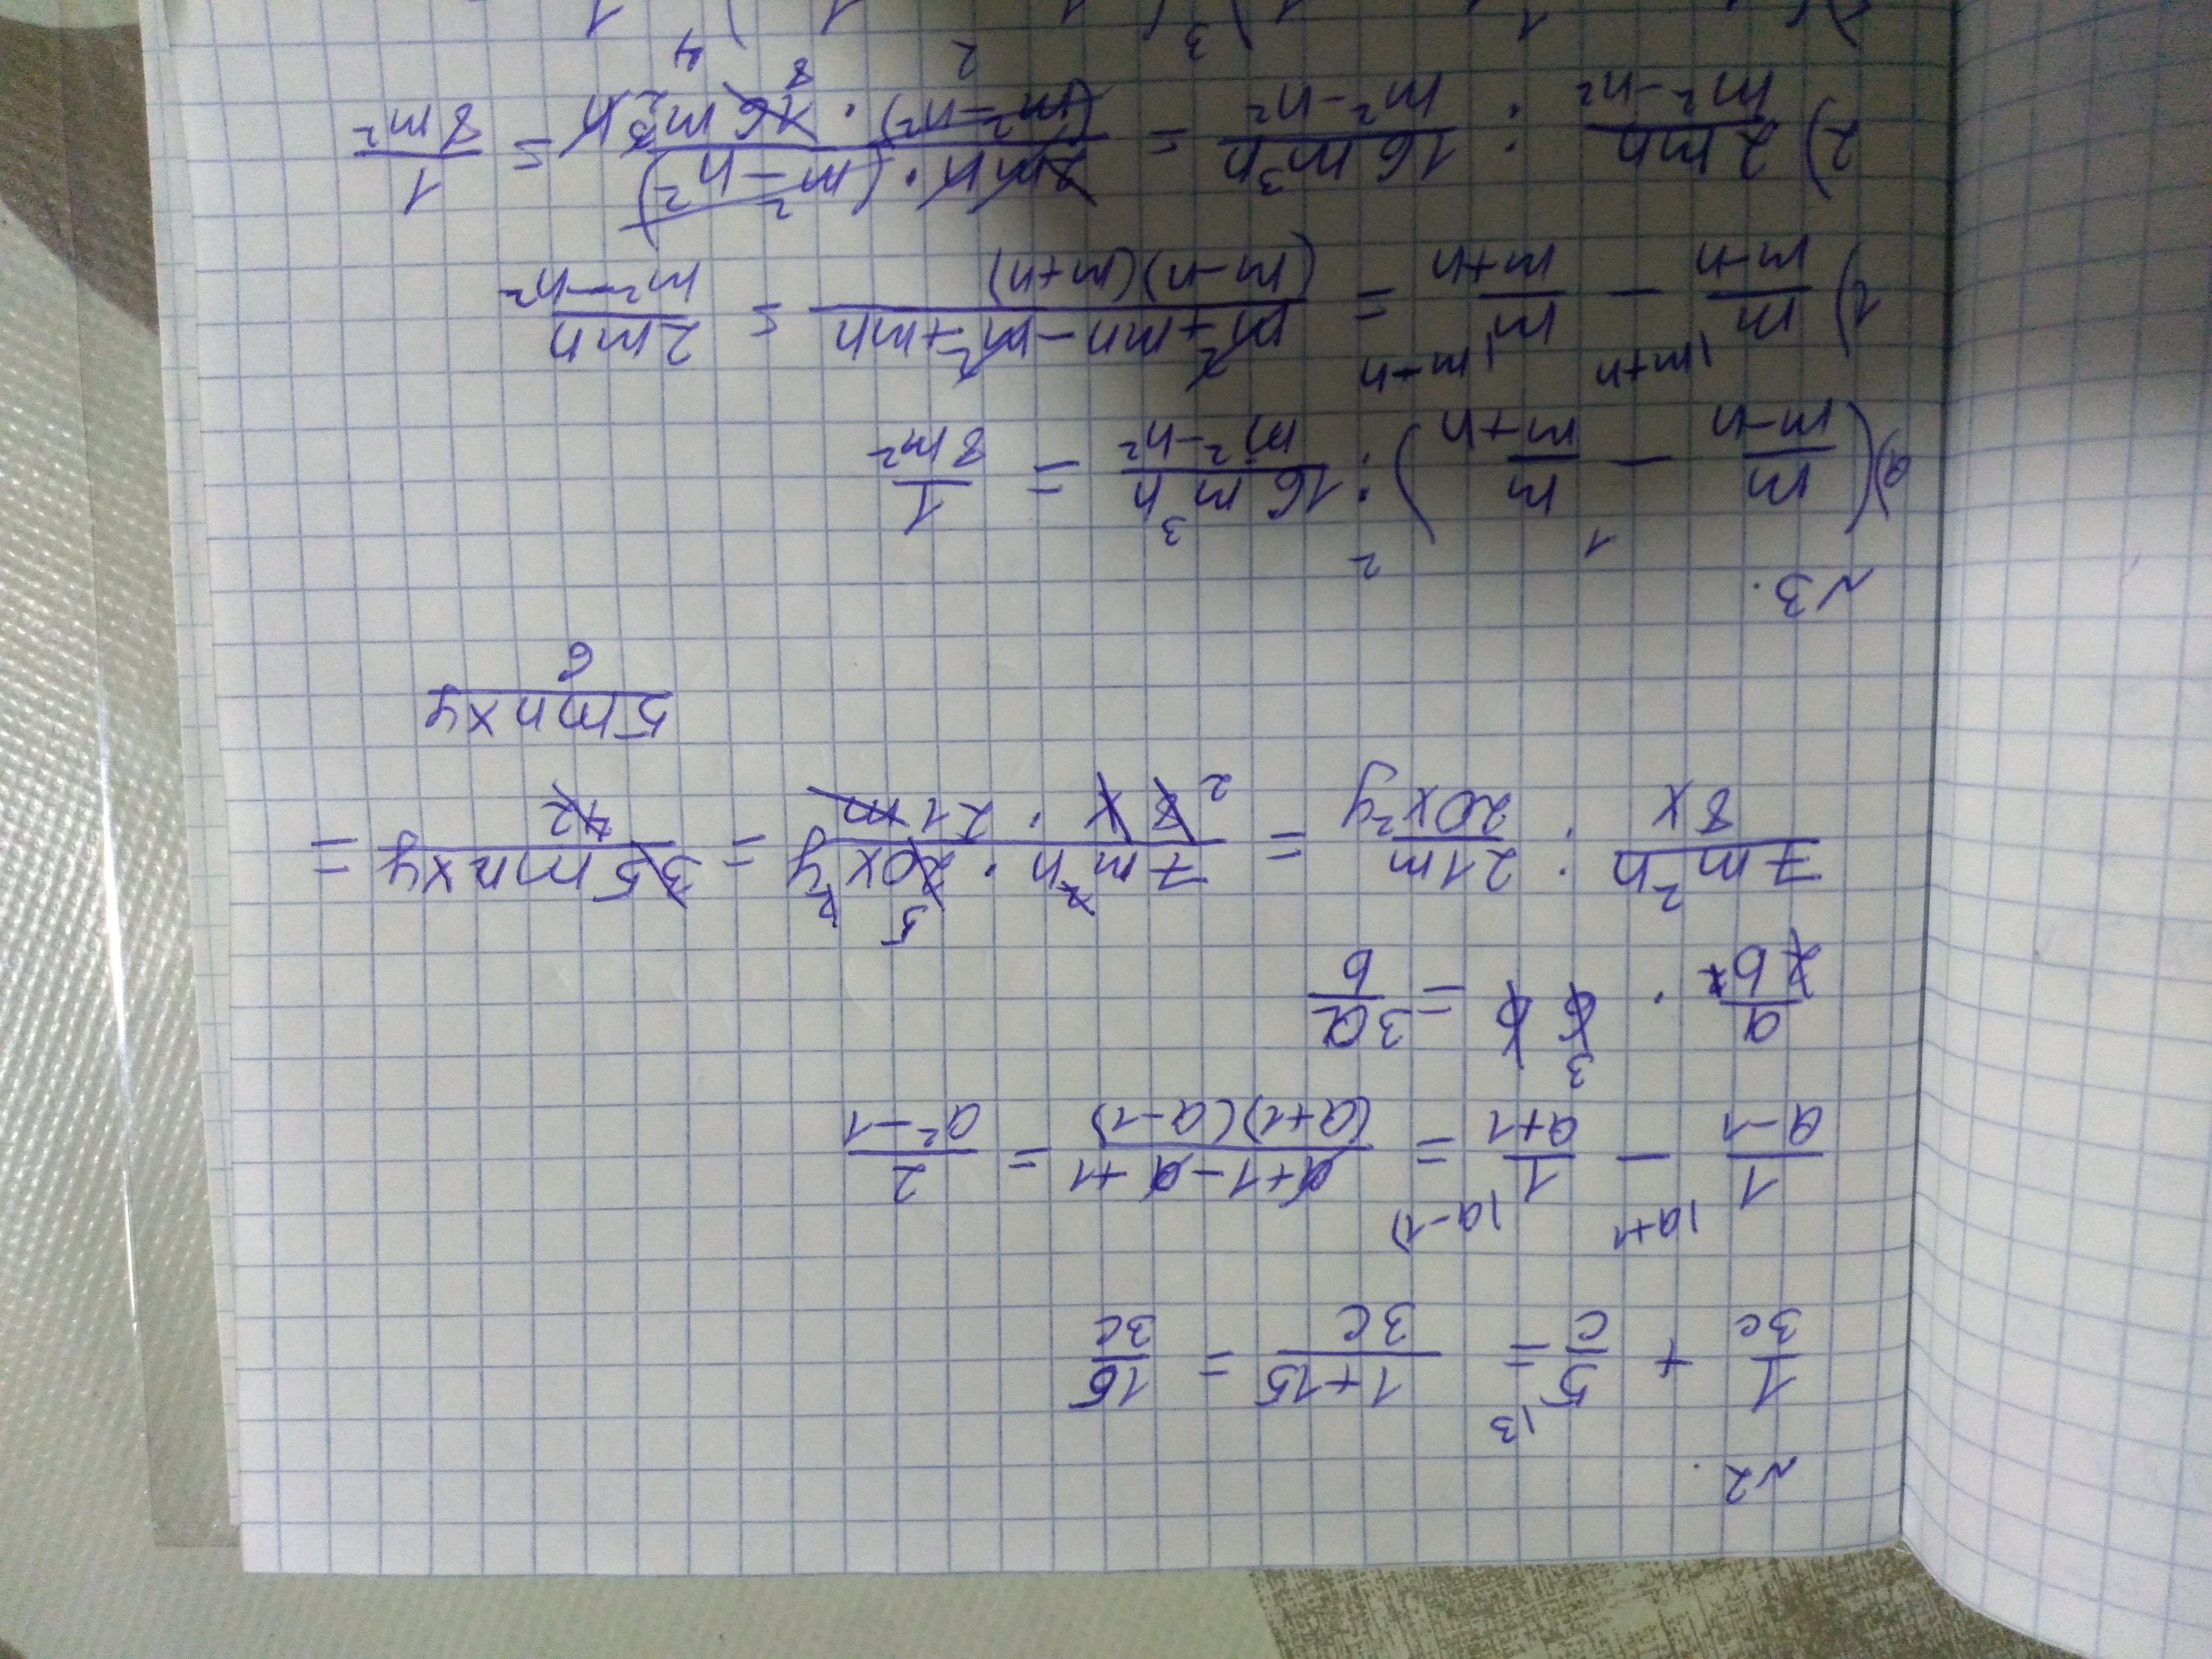 №2.
1/3c + 5/c |3 = (1+15)/3c = 16/3c
1/(a-1) |a+1 - 1/(a+1) |a-1) = (a+1-a+1)/((a+1)(a-1)) = 2/(a²-1)
a/2b² · 6b 3 = 3a/b
7m²n/8x : 21m/20x²y = (7m²n · 20x²y 5)/(8x · 21m 2) = 35mnxy/42 =
5mnxy/6
№3.
a) (m/(m-n) - m/(m+n)) : 16m³n/(m²-n²) = 1/8m²
1) m/(m-n) |m+n - m/(m+n) |m-n = (m²+mn-m²+mn)/((m-n)(m+n)) = 2mn/(m²-n²)
2) 2mn/(m²-n²) : 16m³n/(m²-n²) = (2mn · (m²-n²))/((m²-n²) · 16m³n) 8 2 = 1/8m²